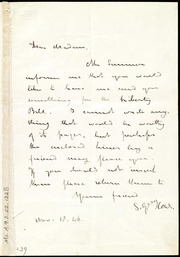 Dear Madam,
Mr Sumner
informs me that you would
like to have me send you
something for the Liberty
Bell. I cannot send any
thing that would be worthy
of its pages, but perhaps
the enclosed lines by a
friend may please you.
If you should not need
them please return them to
Yours friend
S. G. Howe.
Nov. 13. 46.
139